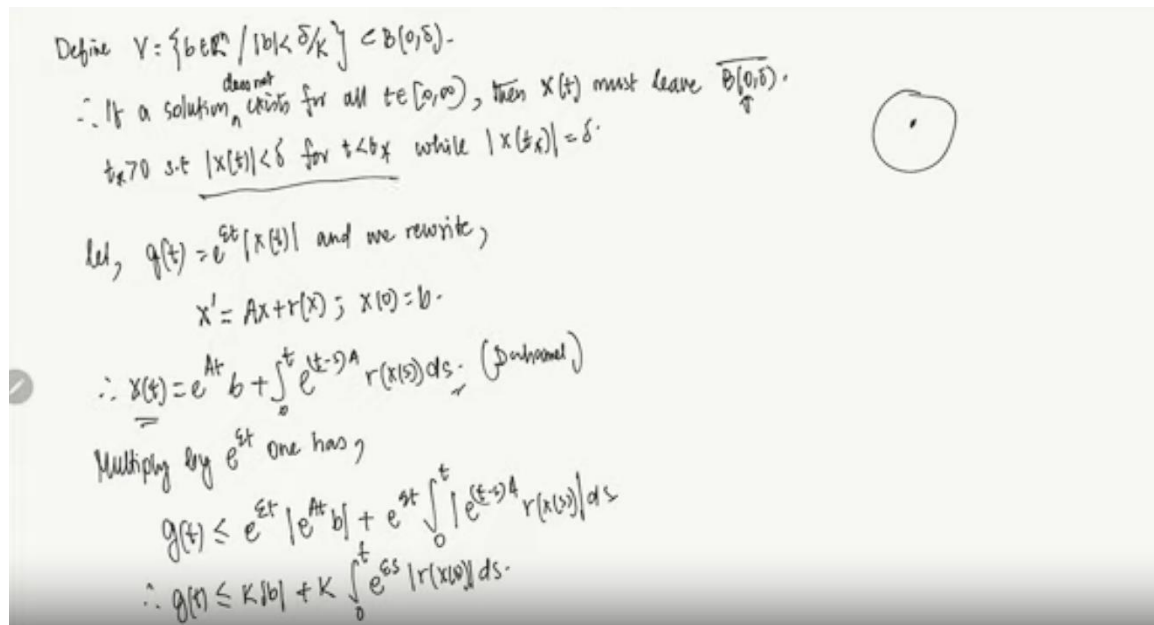 Define V = {b ∈ ℝⁿ / |b| < δ/K} ⊂ B(0,δ).
∴ If a solution does not exists for all t∈[0,∞), then x(t) must leave \overline{B(0,δ)}.
t_* > 0 s.t |x(t)| < δ for t < t_* while |x(t_*)| = δ.
let, g(t) = e^{εt} |x(t)| and we rewrite,
x' = Ax + r(x) ; x(0) = b.
∴ x(t) = e^{At} b + ∫_0^t e^{(t-s)A} r(x(s)) ds. (Duhamel)
Multiply by e^{εt} one has,
g(t) ≤ e^{εt} |e^{At} b| + e^{εt} ∫_0^t |e^{(t-s)A} r(x(s))| ds
∴ g(t) ≤ K|b| + K ∫_0^t e^{εs} |r(x(s))| ds.